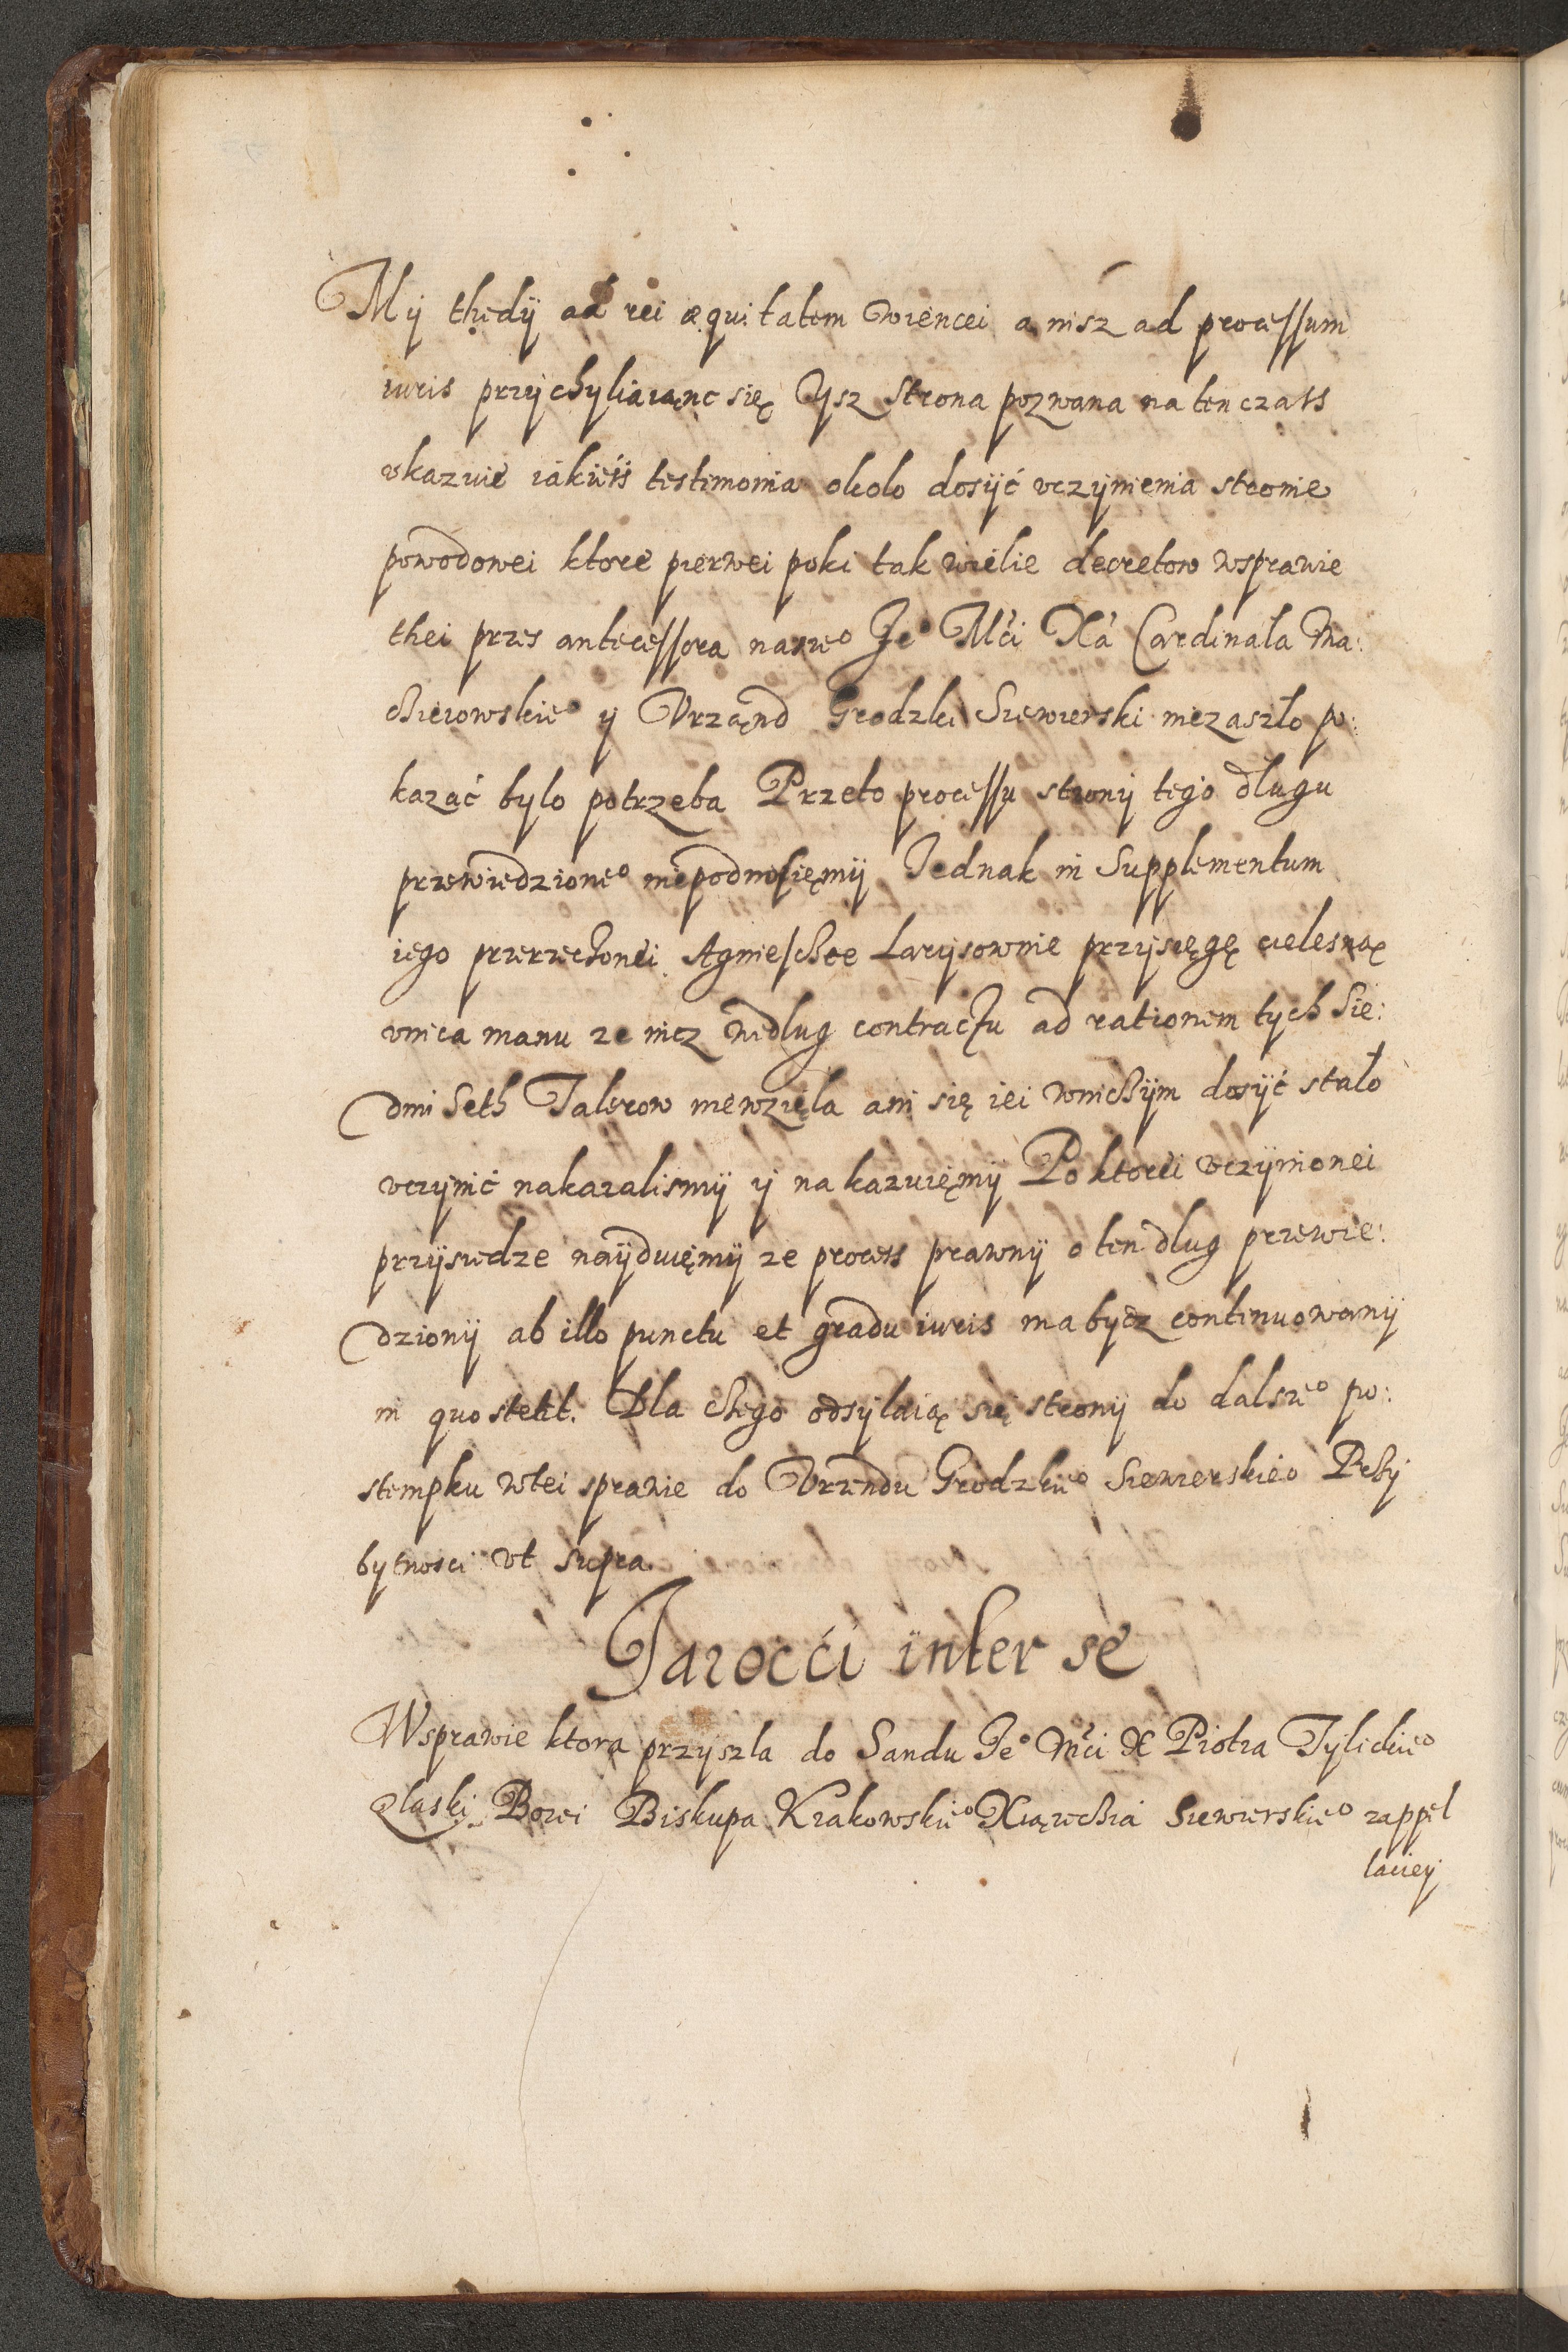 Mÿ thedÿ ad rei æquitatem wiencei anisz ad processum
iuris przÿchyliaiąnc się Ysz strona pozwana na ten czass
vkazuie iakiess testimonia około dosÿć vczÿnienia stronie
powodowei ktore pierwei poki tak wielie decretow wsprawie
thei przes antecessora nasze° Je° Mći Xa Cardinała Ma:
chieiowskie° y Vrząnd Grodzki Siewierski niezaszło po:
kazać bylo potrzeba Przeto processu stronÿ tego dlugu
przewiedzione° niepodnosięmÿ Jednak in Supplementum
iego przerzeczonei Agnieschce Larysownie przÿsięgę cielesną
vnica manu ze nicz wedlug contractu ad rationem tych Sie:
dmi Seth Talerow niewzięła ani się iei wniczÿm dosÿć stało
vczynić nakazalismÿ y nakazuięmÿ Po ktorei vczÿnionei
przÿsiedze naÿduięmÿ ze process prawnÿ o ten dlug przewie:
dzionÿ ab illo punctu et gradu iuris ma bycz continuowanÿ
in quo stetit. Dla czego odsyłaią się stronÿ do dalsze° po:
stempku wtei sprawie do Vrzendu Grodzkie° Siewierskie° Przy
bytnosci vt supra.
Jarocći inter se
Wsprawie ktora przyszla do Sandu Je° Mći X Piotra Tylickie°
zlaski Bozei Biskupa Krakowskie° Xiązęcia Siewierskie° zappel
laciey